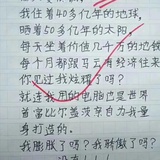 我住着40多亿年的地球,
晒着50多亿年的太阳
每天坐着价值几千万的地铁
每个月都跟马云有经济往来
你见过我炫耀了吗?
就连我用的电脑也是世界
首富比尔盖茨亲自为我量
身打造的.
我膨胀了吗?我骄傲了吗?
没有!!!